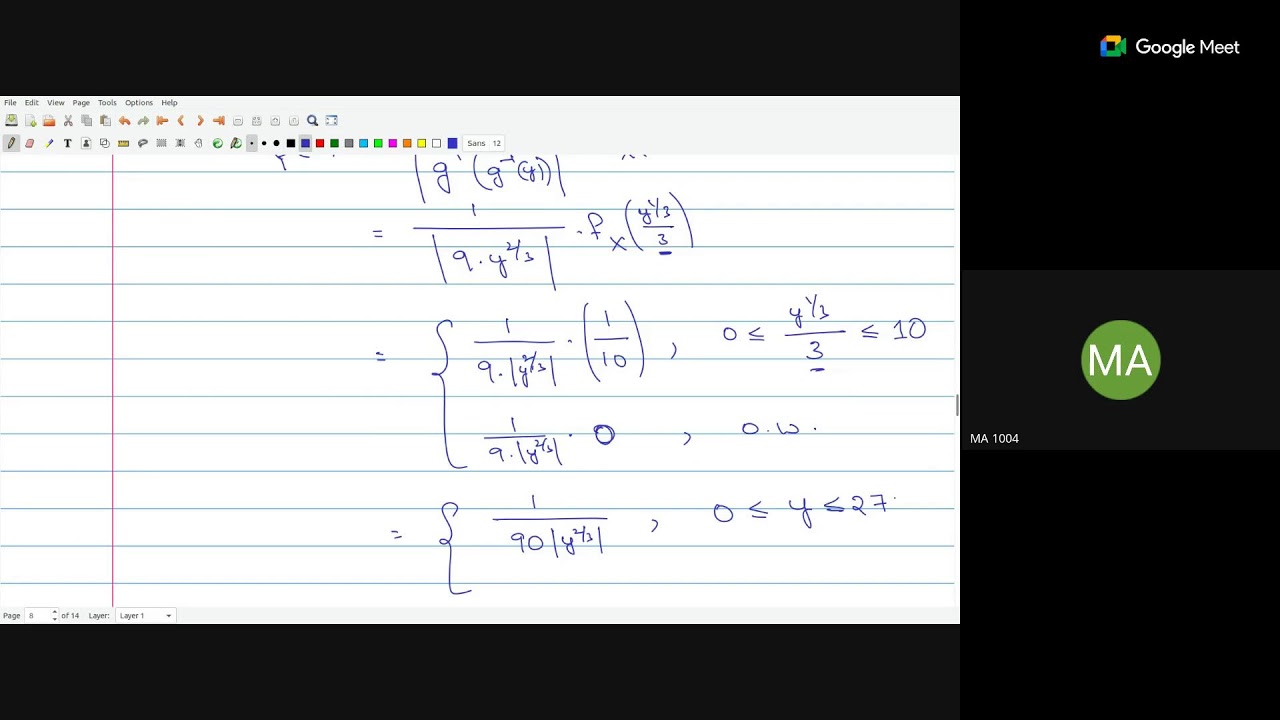 Google Meet
File Edit View Page Tools Options Help
Sans 12
|g'(g⁻¹(y))|
= 1/|9·y^{2/3}| · f_X(y^{1/3}/3)
= { 1/(9·|y^{2/3}|) · (1/10) , 0 ≤ y^{1/3}/3 ≤ 10
1/(9·|y^{2/3}|) · 0 , o.w.
= { 1/(90|y^{2/3}|) , 0 ≤ y ≤ 27
MA
MA 1004
Page 8 of 14 Layer: Layer 1